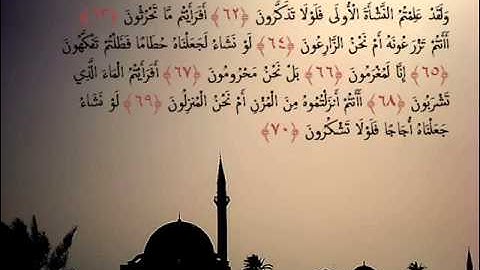 وَلَقَدْ عَلِمْتُمُ النَّشْأَةَ الْأُولَى فَلَوْلَا تَذَكَّرُونَ ﴿٦٢﴾ أَفَرَأَيْتُم مَّا تَحْرُثُونَ ﴿٦٣﴾
أَأَنتُمْ تَزْرَعُونَهُ أَمْ نَحْنُ الزَّارِعُونَ ﴿٦٤﴾ لَوْ نَشَاءُ لَجَعَلْنَاهُ حُطَامًا فَظَلْتُمْ تَفَكَّهُونَ
﴿٦٥﴾ إِنَّا لَمُغْرَمُونَ ﴿٦٦﴾ بَلْ نَحْنُ مَحْرُومُونَ ﴿٦٧﴾ أَفَرَأَيْتُمُ الْمَاءَ الَّذِي
تَشْرَبُونَ ﴿٦٨﴾ أَأَنتُمْ أَنزَلْتُمُوهُ مِنَ الْمُزْنِ أَمْ نَحْنُ الْمُنزِلُونَ ﴿٦٩﴾ لَوْ نَشَاءُ
جَعَلْنَاهُ أُجَاجًا فَلَوْلَا تَشْكُرُونَ ﴿٧٠﴾